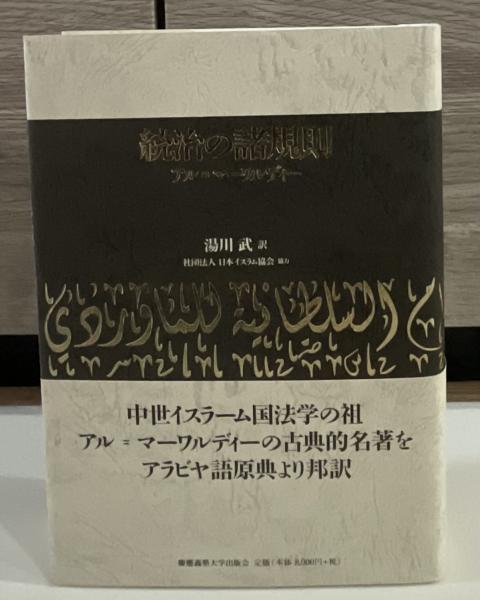 統治の諸規則
アル＝マーワルディー
湯川 武 訳
社団法人 日本イスラム協会 協力
السلطانية للماوردي
中世イスラーム国法学の祖
アル＝マーワルディーの古典的名著を
アラビヤ語原典より邦訳
慶應義塾大学出版会 定価（本体 8,000円+税）